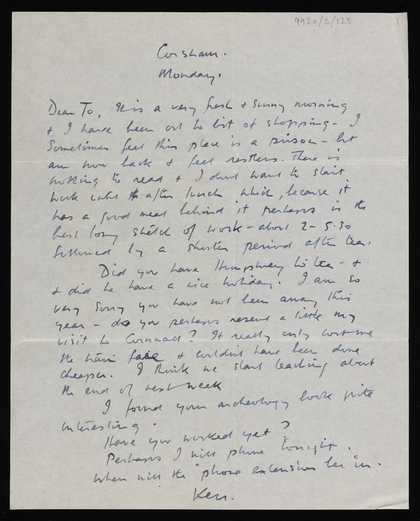 9920/2/125
Corsham.
Monday.
Dear To, It is a very fresh & sunny morning
& I have been out to bit of shopping - I
Sometimes feel this place is a prison - but
am now back & feel restless. There is
nothing to read & I dont want to start
work until after lunch which, because it
has a good meal behind it perhaps is the
best long stretch of work - about 2 - 5.30
followed by a shorter period after tea.
Did you have Humphrey to tea - &
& did he have a nice holiday. I am so
very sorry you have not been away this
year - do you perhaps resent a little my
visit to Cornwall? It really only cost me
the train fare & couldn't have been done
cheaper. I think we start teaching about
the end of next week
I found your archeology book quite
interesting.
Have you worked yet?
Perhaps I will phone tonight.
When will the 'phone extension be in.
Ken.